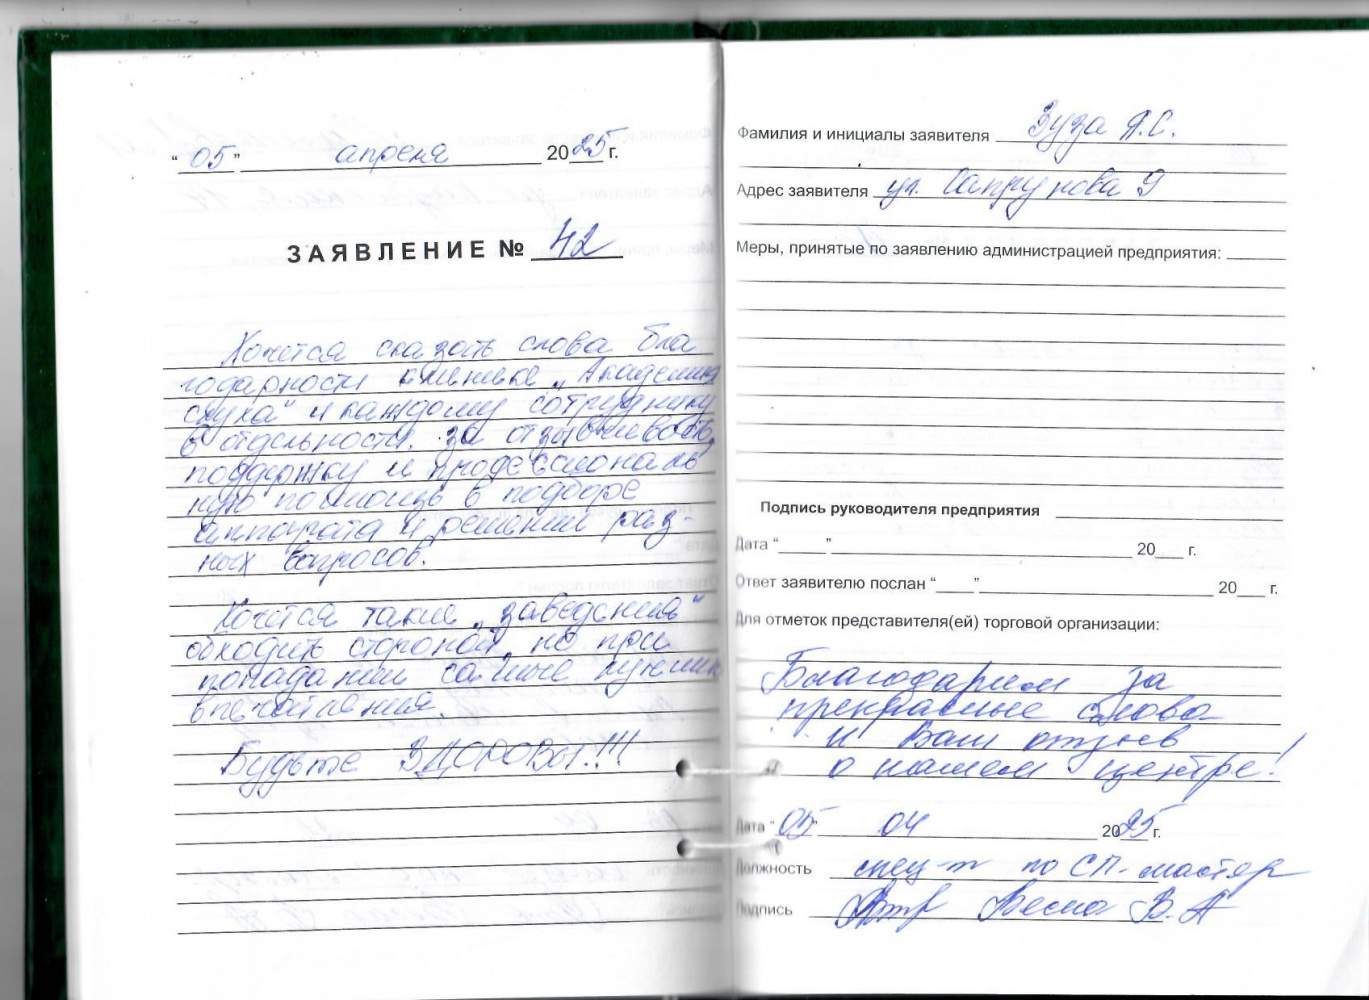 "05" апреля 2025 г.
ЗАЯВЛЕНИЕ № 42
Хочется сказать слова бла
годарности клинике „Академия
слуха" и каждому сотруднику
в отдельности за отзывчивость,
поддержку и профессиональ
ную помощь в подборе
аппарата и решении раз-
ных вопросов.
Хочется такие „заведения"
обходить стороной, но при
попадании самые лучшие
впечатления.
Будьте ЗДОРОВЫ!!!
Фамилия и инициалы заявителя Зуза А.С.
Адрес заявителя ул. Сапрунова 9
Меры, принятые по заявлению администрацией предприятия:
Подпись руководителя предприятия
Дата " " 20 г.
Ответ заявителю послан " " 20 г.
Для отметок представителя(ей) торговой организации:
Благодарим за
прекрасные слова
и Ваш отзыв
о нашем центре!
Дата "05" 04 2025 г.
Должность спец-т по СП-мастер
Подпись Весна В.А